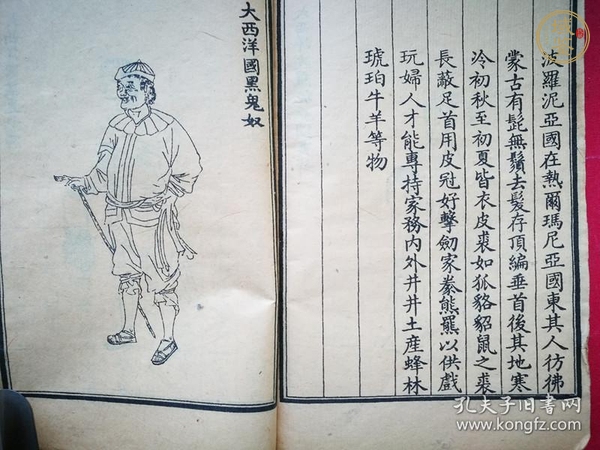 波羅泥亞國在熱爾瑪尼亞國東其人彷彿
蒙古有髭無鬚去髮存頂編垂首後其地寒
冷初秋至初夏皆衣皮裘如狐貉貂鼠之裘
長蔽足首用皮冠好擊劒家豢熊羆以供戲
玩婦人才能專持家務內外井井土產蜂林
琥珀牛羊等物
大西洋國黑鬼奴
孔夫子旧书网
www.kongfz.com